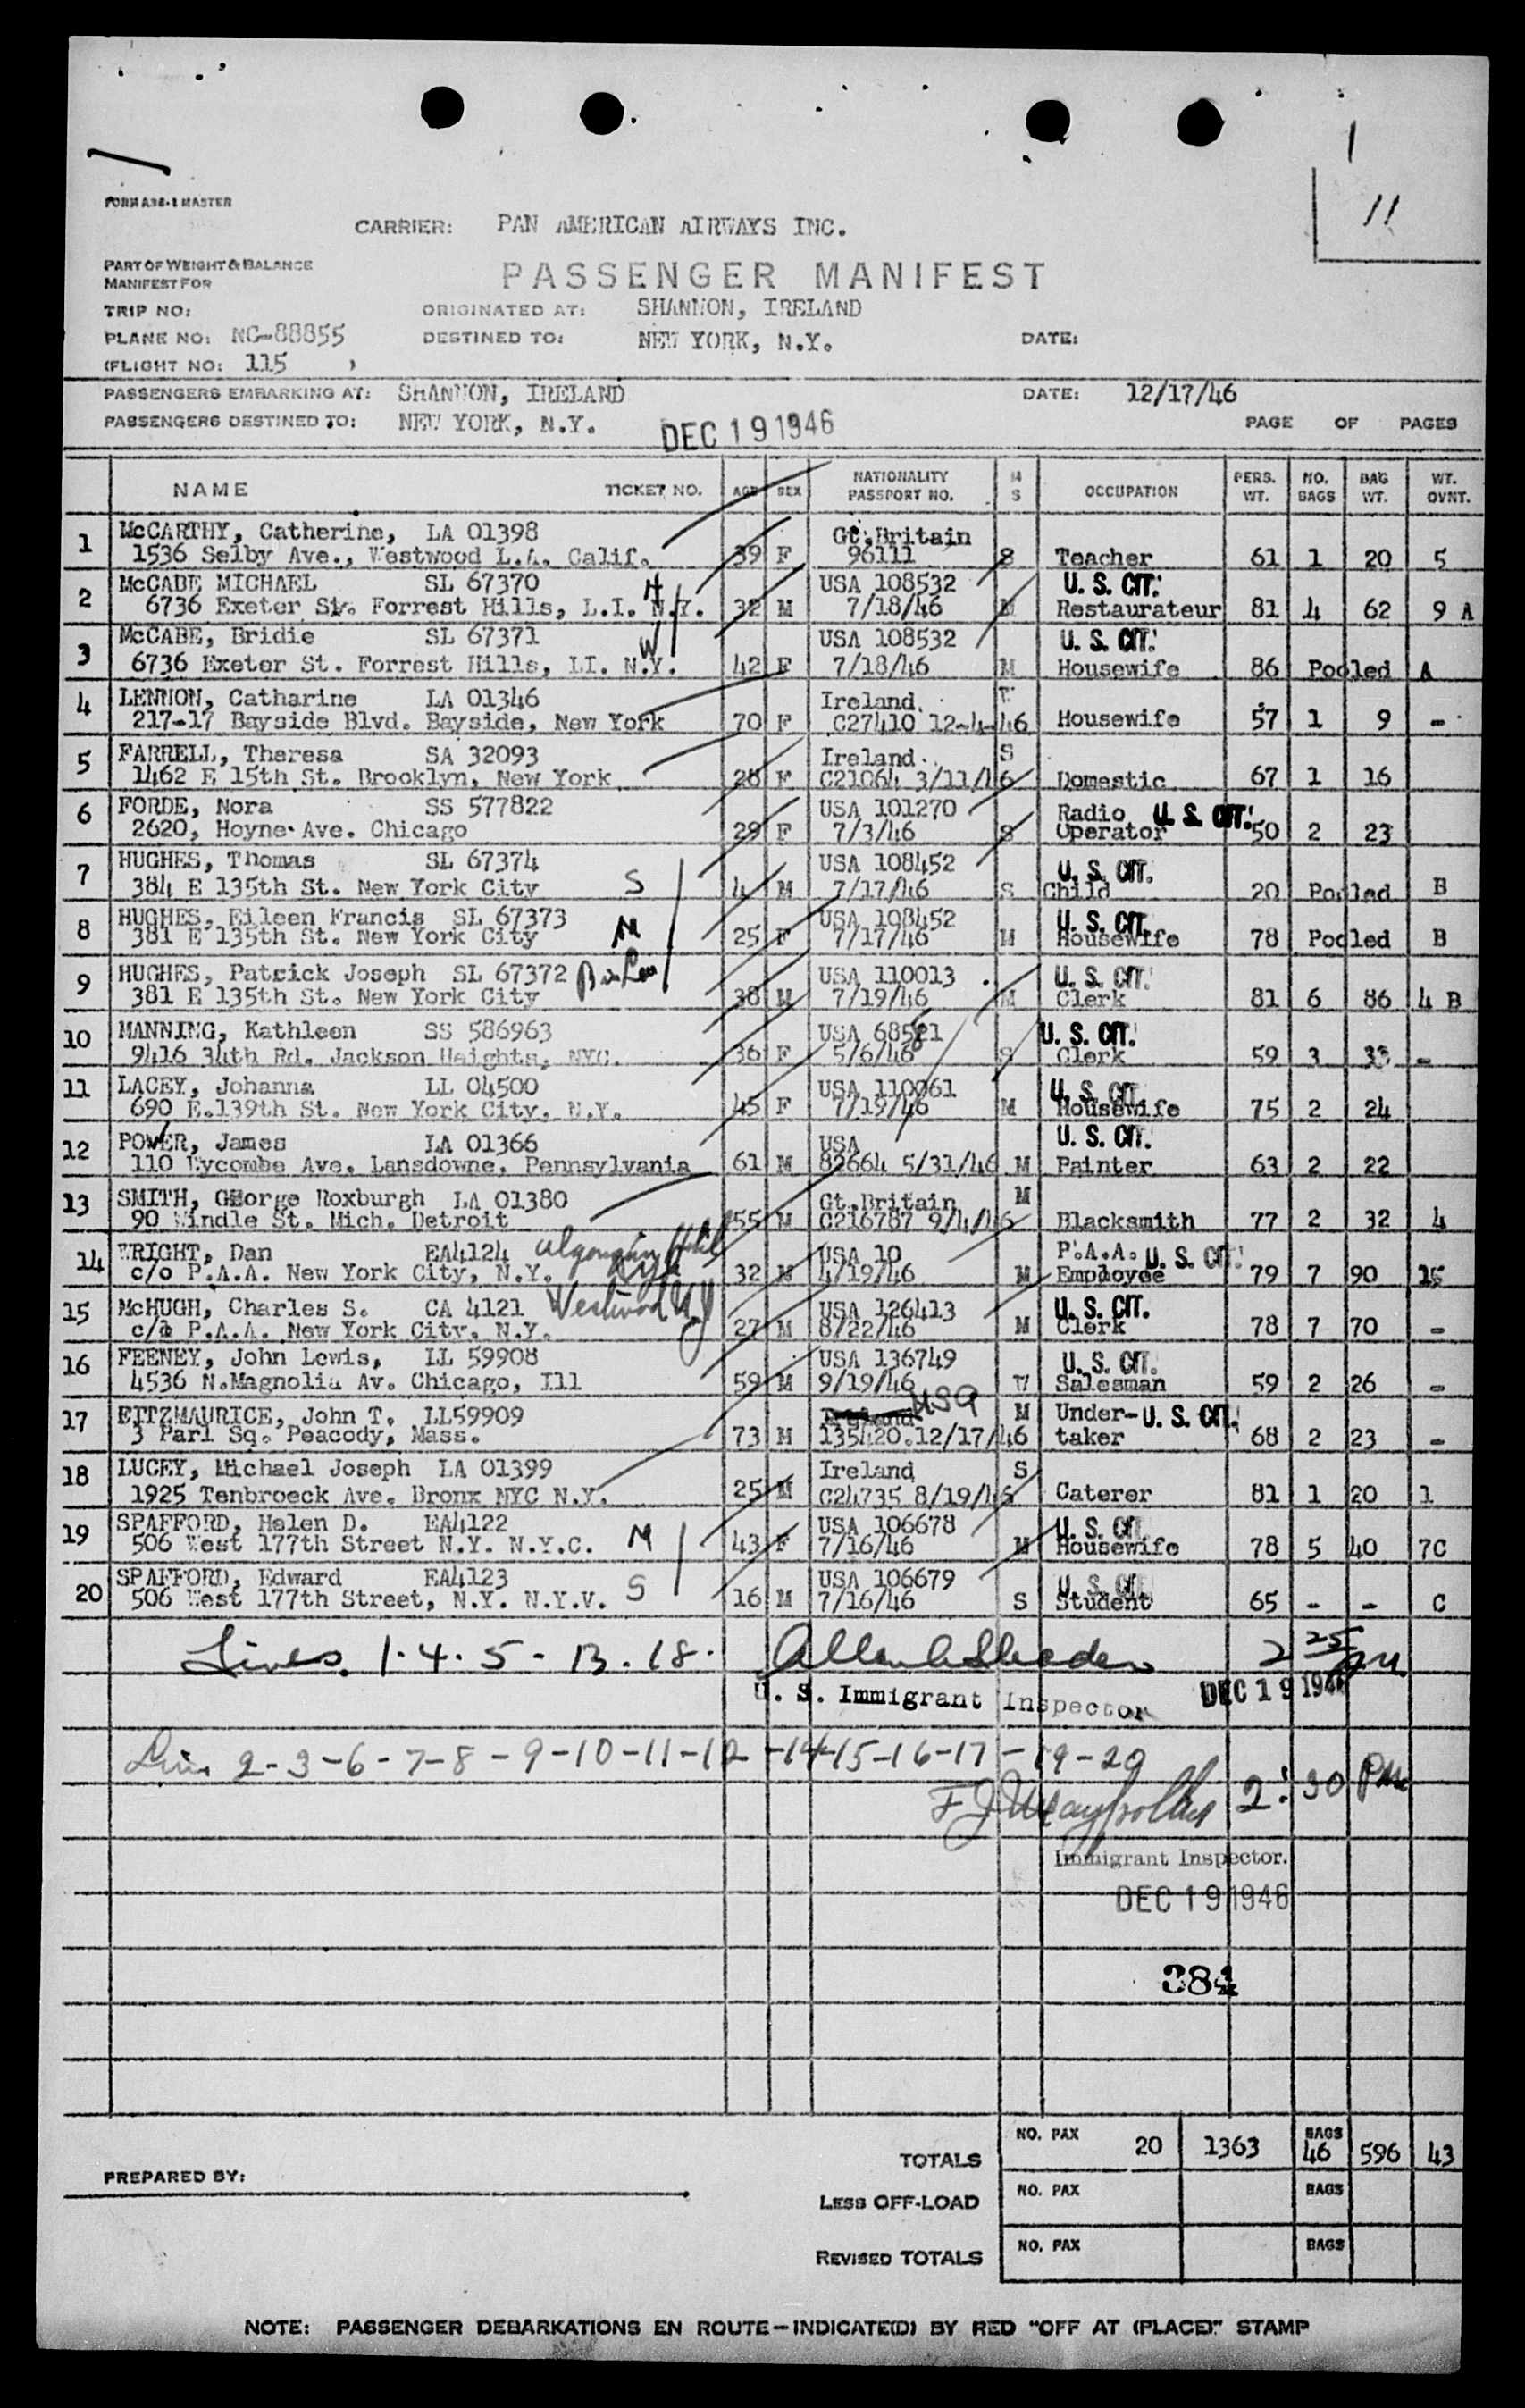 11
FORM A36-1 MASTER
CARRIER: PAN AMERICAN AIRWAYS INC.
PART OF WEIGHT & BALANCE
MANIFEST FOR
PASSENGER MANIFEST
TRIP NO: ORIGINATED AT: SHANNON, IRELAND
PLANE NO: NC-88855 DESTINED TO: NEW YORK, N.Y. DATE:
(FLIGHT NO: 115 )
PASSENGERS EMBARKING AT: SHANNON, IRELAND DATE: 12/17/46
PASSENGERS DESTINED TO: NEW YORK, N.Y. DEC 19 1946 PAGE OF PAGES
NAME TICKET NO. AGE SEX NATIONALITY PASSPORT NO. M S OCCUPATION PERS. WT. NO. BAGS BAG WT. WT. OVNT.
1 McCARTHY, Catherine, LA 01398 Gt.Britain
1536 Selby Ave., Westwood L.A. Calif. 39 F 96111 S Teacher 61 1 20 5
2 McCABE MICHAEL SL 67370 H USA 108532 U. S. CIT.
6736 Exeter St. Forrest Hills, L.I. N.Y. 32 M 7/18/46 M Restaurateur 81 4 62 9 A
3 McCABE, Bridie SL 67371 W USA 108532 U. S. CIT.
6736 Exeter St. Forrest Hills, LI. N.Y. 42 F 7/18/46 M Housewife 86 Pooled A
4 LENNON, Catharine LA 01346 Ireland. W
217-17 Bayside Blvd. Bayside, New York 70 F C27410 12-4-46 Housewife 57 1 9 -
5 FARRELL, Theresa SA 32093 Ireland. S
1462 E 15th St. Brooklyn, New York 28 F C21064 3/11/46 Domestic 67 1 16
6 FORDE, Nora SS 577822 USA 101270 Radio U. S. CIT.
2620, Hoyne Ave. Chicago 29 F 7/3/46 S Operator 50 2 23
7 HUGHES, Thomas SL 67374 USA 108452 U. S. CIT.
384 E 135th St. New York City S 4 M 7/17/46 S Child 20 Pooled B
8 HUGHES, Eileen Francis SL 67373 USA 108452 U. S. CIT.
381 E 135th St. New York City M 25 F 7/17/46 M Housewife 78 Pooled B
9 HUGHES, Patrick Joseph SL 67372 USA 110013 U. S. CIT.
381 E 135th St. New York City 38 M 7/19/46 M Clerk 81 6 86 4 B
10 MANNING, Kathleen SS 586963 USA 68581 U. S. CIT.
9416 34th Rd. Jackson Heights, NYC. 36 F 5/6/46 S Clerk 59 3 33 -
11 LACEY, Johanna LL 04500 USA 110061 U. S. CIT.
690 E.139th St. New York City, N.Y. 45 F 7/19/46 M Housewife 75 2 24
12 POWER, James LA 01366 USA U. S. CIT.
110 Wycombe Ave. Lansdowne, Pennsylvania 61 M 82664 5/31/46 M Painter 63 2 22
13 SMITH, George Roxburgh LA 01380 Gt.Britain M
90 Windle St. Mich. Detroit 55 M C216787 9/4/46 Blacksmith 77 2 32 4
14 WRIGHT, Dan EA4124 Algonquin Hotel USA 10 P.A.A. U. S. CIT.
c/o P.A.A. New York City, N.Y. NYC 32 M 4/19/46 M Employee 79 7 90 15
15 McHUGH, Charles S. CA 4121 Westwood N J USA 126413 U. S. CIT.
c/o P.A.A. New York City, N.Y. 27 M 8/22/46 M Clerk 78 7 70 -
16 FEENEY, John Lewis, LL 59908 USA 136749 U. S. CIT.
4536 N.Magnolia Av. Chicago, Ill 59 M 9/19/46 W Salesman 59 2 26 -
17 FITZMAURICE, John T. LL59909 USA M Under- U. S. CIT.
3 Parl Sq. Peacody, Mass. 73 M 135420.12/17/46 taker 68 2 23 -
18 LUCEY, Michael Joseph LA 01399 Ireland S
1925 Tenbroeck Ave. Bronx NYC N.Y. 25 M C24735 8/19/46 Caterer 81 1 20 1
19 SPAFFORD, Helen D. EA4122 USA 106678 U. S. CIT.
506 West 177th Street N.Y. N.Y.C. M 43 F 7/16/46 M Housewife 78 5 40 7C
20 SPAFFORD, Edward EA4123 USA 106679 U. S. CIT.
506 West 177th Street, N.Y. N.Y.V. S 16 M 7/16/46 S Student 65 - - C
Lines 1-4-5-13-18. 2 25 PM
U. S. Immigrant Inspector DEC 19 1946
Lines 2-3-6-7-8-9-10-11-12-14-15-16-17-19-20
2:30 PM
Immigrant Inspector.
DEC 19 1946
384
TOTALS NO. PAX 20 1363 BAGS 46 596 43
PREPARED BY:
LESS OFF-LOAD NO. PAX BAGS
REVISED TOTALS NO. PAX BAGS
NOTE: PASSENGER DEBARKATIONS EN ROUTE—INDICATE(D) BY RED "OFF AT (PLACE)" STAMP